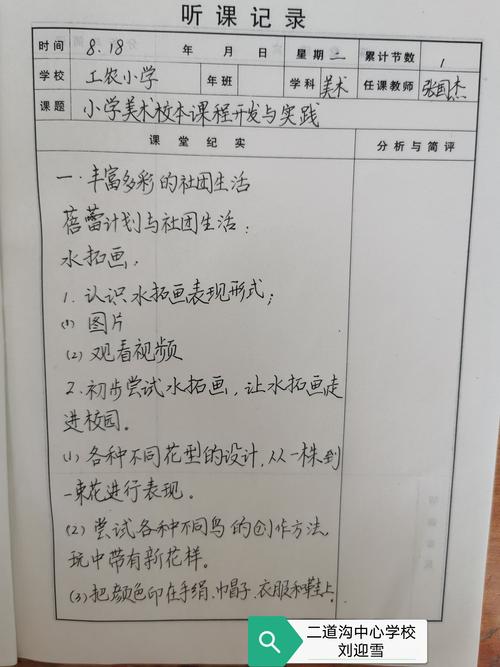 听课记录
时间 8.18 年 月 日 星期 二 累计节数 1
学校 工农小学 年班 学科 美术 任课教师 张国杰
课题 小学美术校本课程开发与实践
课堂纪实 分析与简评
一.丰富多彩的社团生活
蓓蕾计划与社团生活:
水拓画,
1.认识水拓画表现形式;
(1)图片
(2)观看视频
2.初步尝试水拓画,让水拓画走
进校园。
(1)各种不同花型的设计,从一株到
一束花进行表现。
(2)尝试各种不同鸟的创作方法,
玩中带有新花样。
(3)把颜色印在手绢、巾帽子、衣服和鞋上
二道沟中心学校
刘迎雪